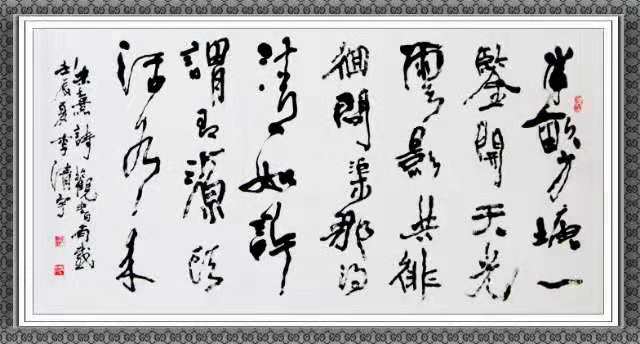 半畝方塘一
鑒開天光
雲影共徘
徊問渠那得
清如許
謂有源頭
活水來
朱熹詩觀書有感
壬辰夏李清